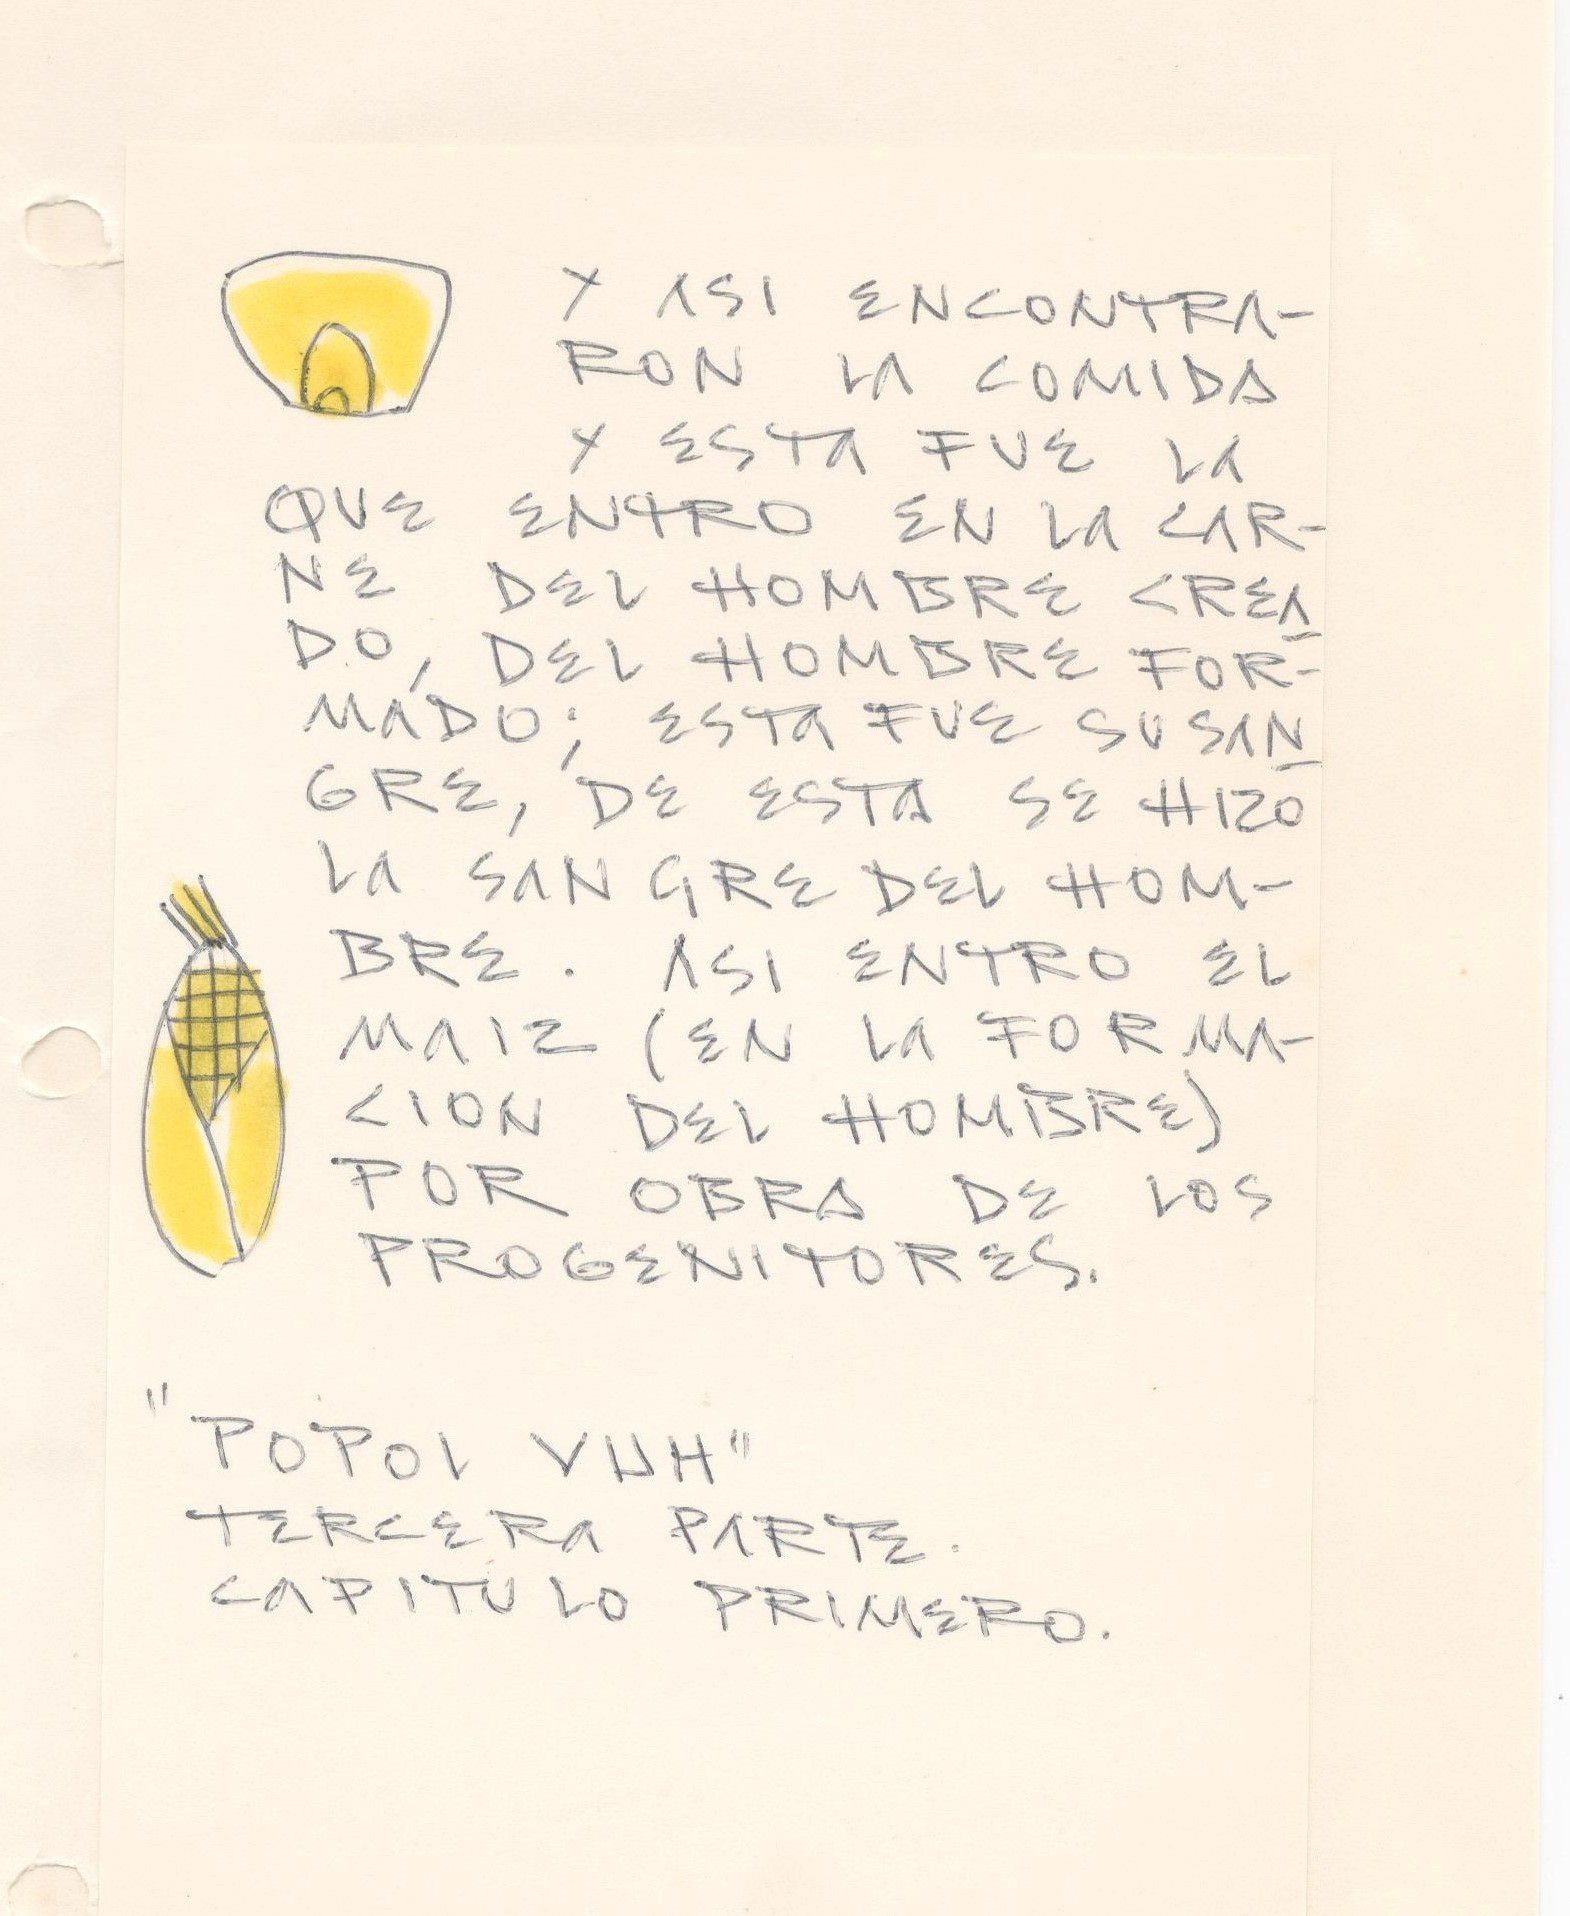 Y ASI ENCONTRA-
RON LA COMIDA
Y ESTA FUE LA
QUE ENTRO EN LA CAR-
NE DEL HOMBRE CREA
DO, DEL HOMBRE FOR-
MADO; ESTA FUE SU SAN
GRE, DE ESTA SE HIZO
LA SANGRE DEL HOM-
BRE. ASI ENTRO EL
MAIZ (EN LA FORMA-
CION DEL HOMBRE)
POR OBRA DE LOS
PROGENITORES.
"POPOL VUH"
TERCERA PARTE.
CAPITULO PRIMERO.